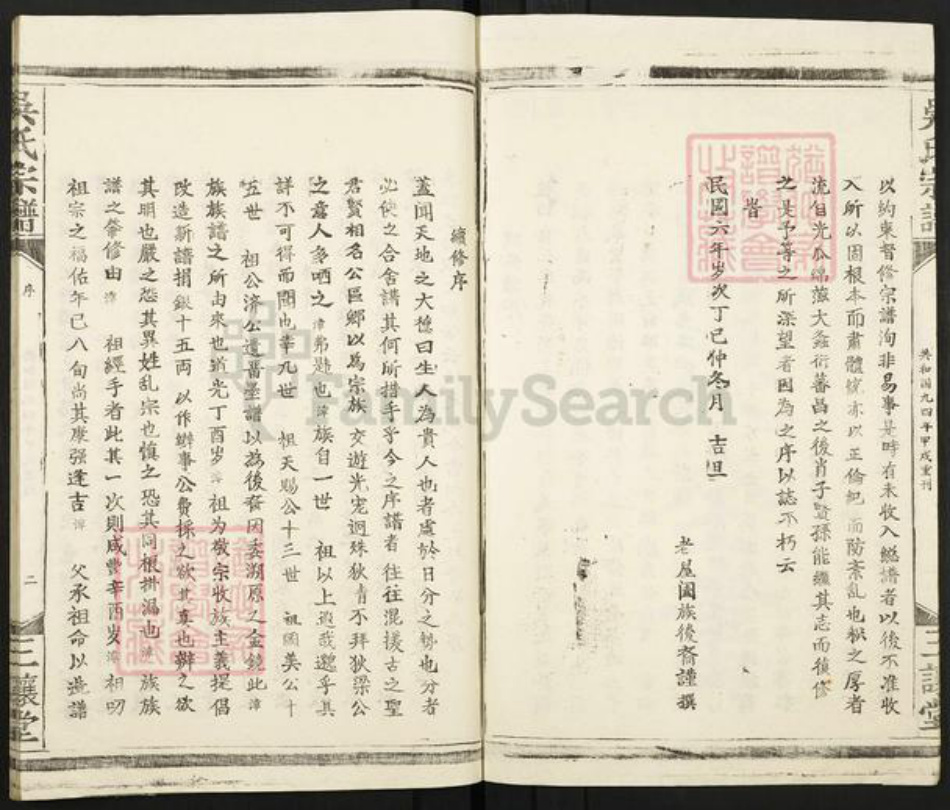 吳氏宗譜
共和国九四年甲戌重刊
三讓堂
以約束督修宗譜洵非易事是時有未收入總譜者以後不准收
入所以固根本而肅體統亦以正倫紀而防紊亂也枞之厚者
流自光瓜綿蕰大螽衍蕃昌之後肖子賢孫能繼其志而復修
之是予等之所深望者因為之序以誌不朽云
旹
民國六年岁次丁巳仲冬月 吉旦
老屋闔族後裔謹撰
續修序
蓋聞天地之大德曰生人為貴人也者處於日分之勢也分者
必使之合舍譜其何所措手乎今之序譜者往往混援古之聖
君賢相名公區鄉以為宗族交遊光宠迥殊狄青不拜狄梁公
之意人多哂之 弗韙也 族自一世 祖以上遐哉邈乎其
詳不可得而聞也幸九世 祖天賜公十三世 祖國美公十
五世 祖公济公遺舊墨譜以為後裔因委溯原之金鏡此
族族譜之所由來也道光丁酉岁 祖为敬宗收族主義提倡
改造新譜捐銀十五両以作辦事公費採之欲其真也辦之欲
其明也嚴之恐其異姓乱宗也慎之恐其同根掛漏也 族族
譜之肇修由 祖經手者此其一次則咸豐辛酉岁 祖叨
祖宗之福佑年已八旬尚其康强逢吉 父承祖命以造譜
吳氏宗譜
序
二
三讓堂
FamilySearch